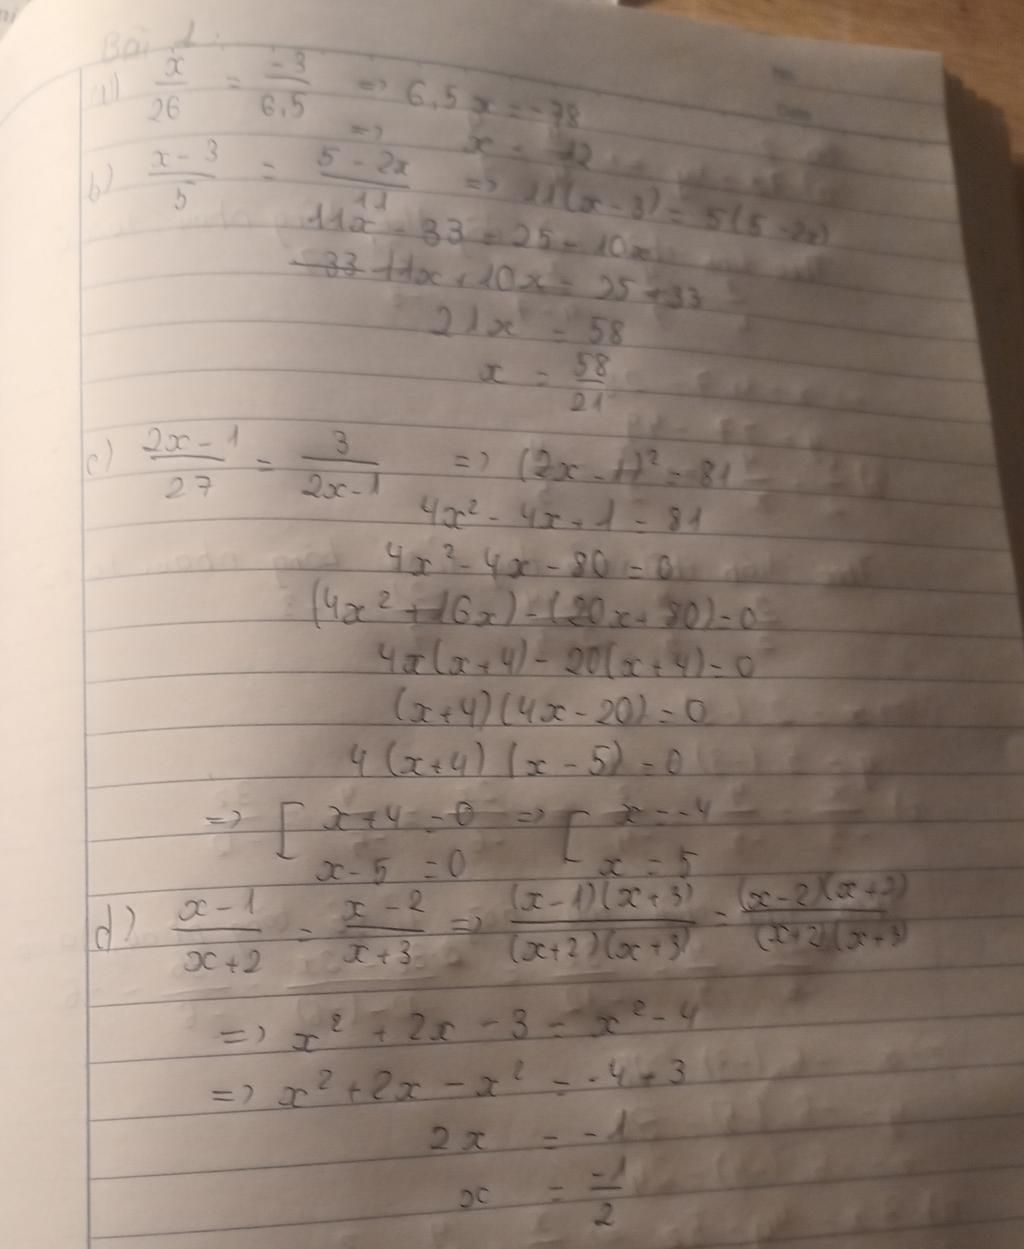 Bài 1:
a) x/26 = -3/6,5 => 6,5x = -78
=> x = -12
b) x-3/5 = 5-2x/11 => 11(x-3) = 5(5-2x)
11x - 33 = 25 - 10x
11x + 10x = 25 + 33
21x = 58
x = 58/21
c) 2x-1/27 = 3/2x-1 => (2x-1)² = 81
4x² - 4x + 1 = 81
4x² - 4x - 80 = 0
(4x² + 16x) - (20x + 80) = 0
4x(x+4) - 20(x+4) = 0
(x+4)(4x-20) = 0
4(x+4)(x-5) = 0
=> [ x+4 = 0 => [ x = -4
x-5 = 0 x = 5
d) x-1/x+2 = x-2/x+3 => (x-1)(x+3)/(x+2)(x+3) = (x-2)(x+2)/(x+2)(x+3)
=> x² + 2x - 3 = x² - 4
=> x² + 2x - x² = -4 + 3
2x = -1
x = -1/2